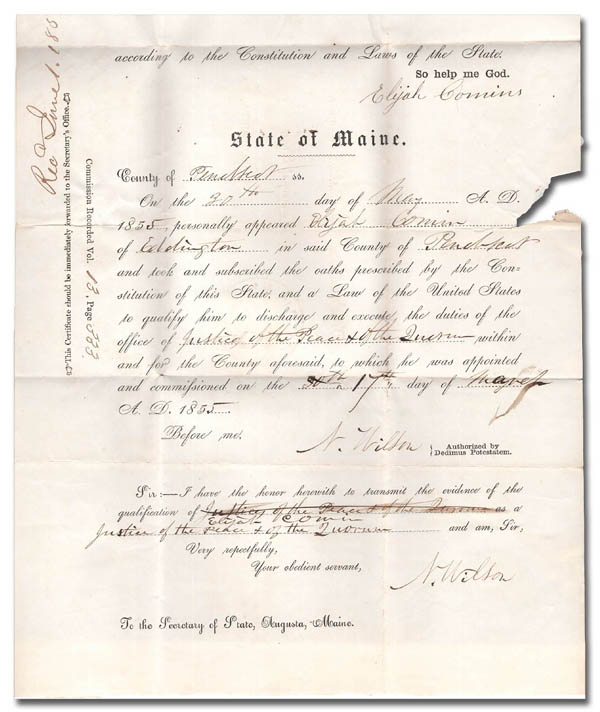 according to the Constitution and Laws of the State.
So help me God.
Elijah Comins
State of Maine.
County of Penobscot ss.
On the 30th day of May A. D.
1855 personally appeared Elijah Comin
of Eddington in said County of Penobscot
and took and subscribed the oaths prescribed by the Con-
stitution of this State, and a Law of the United States
to qualify him to discharge and execute the duties of the
office of Justice of the Peace & of the Quorum within
and for the County aforesaid, to which he was appointed
and commissioned on the 17th day of
A. D. 1855
Before me,
N. Wilson
Authorized by
Dedimus Potestatem.
Sir:—I have the honor herewith to transmit the evidence of the
qualification of Justice of the Peace & of the Quorum as a
Elijah Comin
Justice of the Peace & of the Quorum and am, Sir,
Very repectfully,
Your obedient servant,
N. Wilson
To the Secretary of State, Augusta, Maine.
This Certificate should be immediately forwarded to the Secretary's Office.
Commission Recorded Vol. 13, Page
Recd June 1. 185